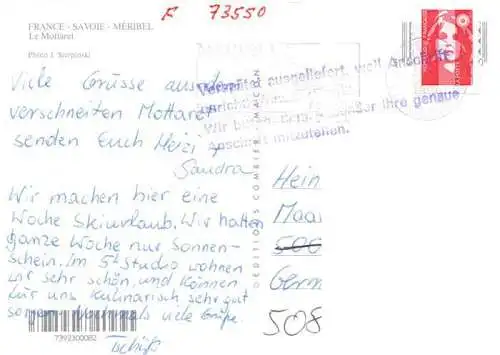 F 73550
FRANCE - SAVOIE - MÉRIBEL
Le Mottaret
Photo J. Sierpinski
Viele Grüsse aus dem
verschneiten Mottaret
senden Euch Heizi +
Sandra
Wir machen hier eine
Woche Skiurlaub. Wir hatten
ganze Woche nur Sonnen-
schein. Im Studio wohnen
wir sehr schön, und können
für uns kulinarisch sehr gut
sorgen. Nochmals viele Grüße.
Tschüß
7392300082
EDITIONS COMBIER MACON
Verspätet ausgeliefert, weil Anschrift
Wir bitten, dem Absender Ihre genaue
Anschrift mitzuteilen.
Hein
Maa
500
Germ
508